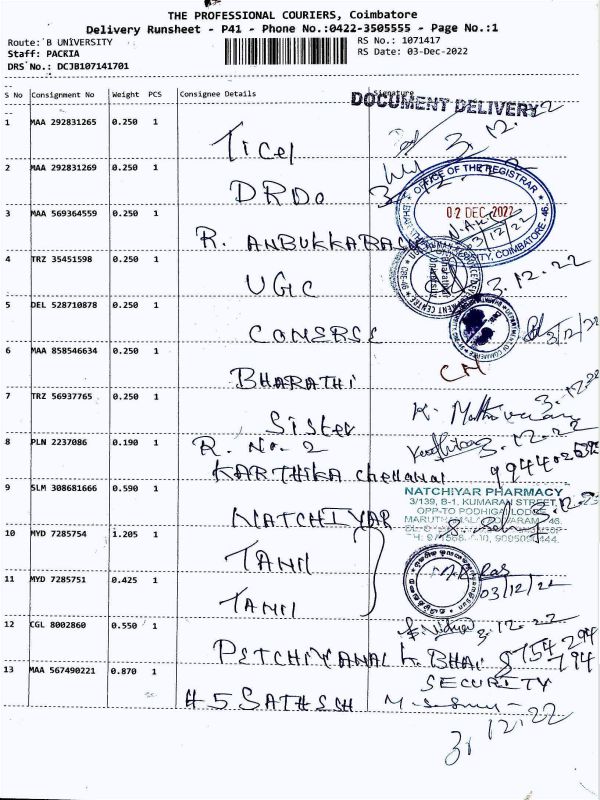 THE PROFESSIONAL COURIERS, Coimbatore
Delivery Runsheet - P41 - Phone No.:0422-3505555 - Page No.:1
Route: B UNIVERSITY
RS No.: 1071417
Staff: PACKIA
RS Date: 03-Dec-2022
DRS No.: DCJB107141701
S No Consignment No Weight PCS Consignee Details Signature
DOCUMENT DELIVERY
1 MAA 292831265 0.250 1 Ticel 3.12.22
2 MAA 292831269 0.250 1 DRDO
OFFICE OF THE REGISTRAR
02 DEC 2022
COIMBATORE - 46
3 MAA 569364559 0.250 1 R. ANBUKKARACU 3/12/22
4 TRZ 35451598 0.250 1 UGC 3.12.22
5 DEL 528710878 0.250 1 COMERSE 3/12/22
6 MAA 858546634 0.250 1 BHARATHI
7 TRZ 56937765 0.250 1 Sister 3.12.22
8 PLN 2237086 0.190 1 R. No. 2 3.12.22
KARTHIKA Chellamal
9 SLM 308681666 0.590 1 NATCHIYAR
NATCHIYAR PHARMACY
3/139, B-1, KUMARAN STREET,
OPP-TO PODHIGAI LODGE
10 MYD 7285754 1.205 1 TAMIL
11 MYD 7285751 0.425 1 TAMIL 03/12/22
12 CGL 8002860 0.550 1 PETCHIYAMAL K. BHAI 3.12.22
13 MAA 567490221 0.870 1 H5 SATHESH
SECURITY
3.12.22